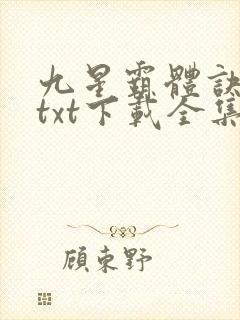 九星霸體訣
txt下載全集
顧東野